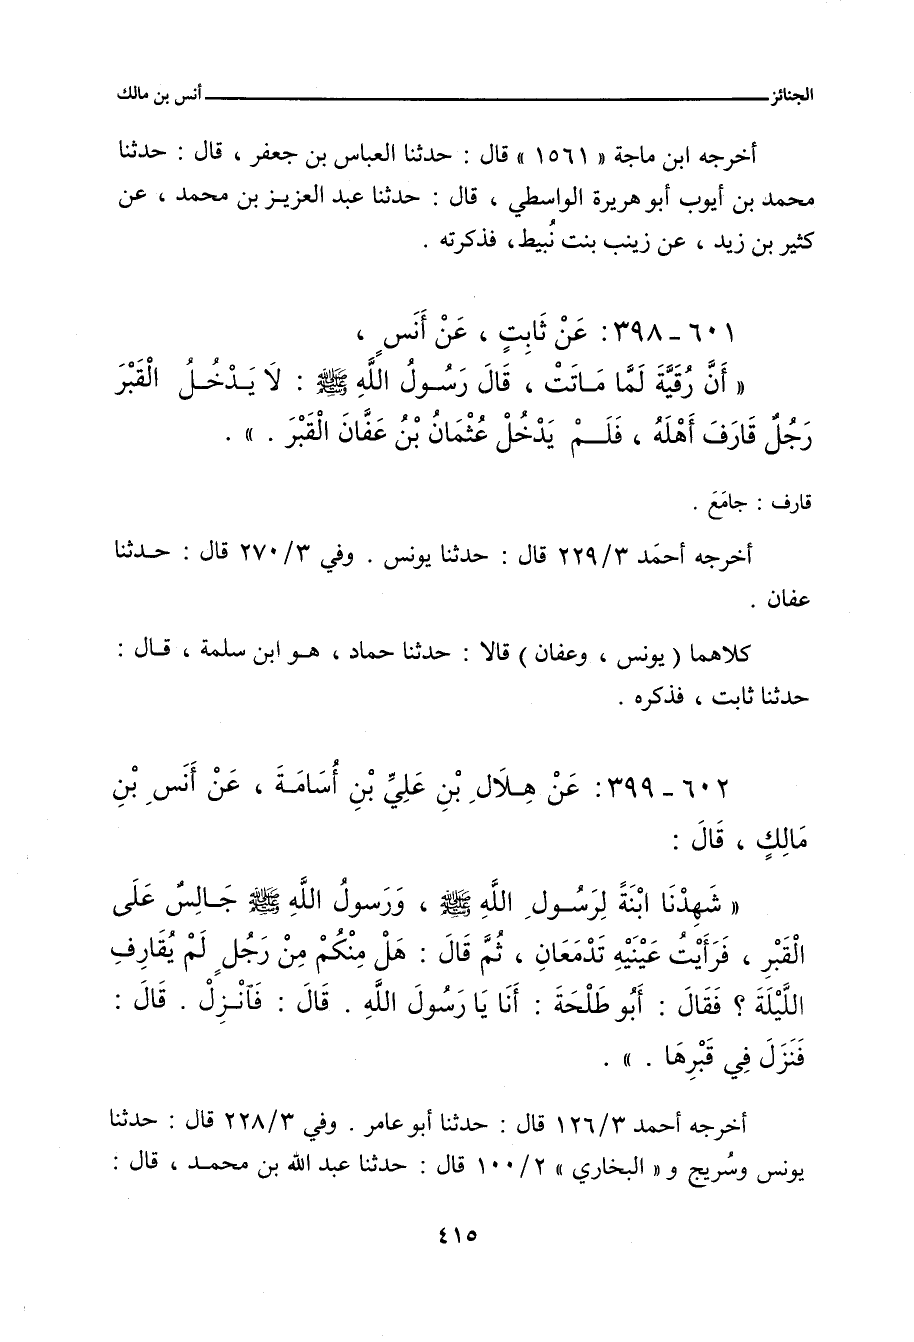 الجنائز ــــــــــــــــــــ أنس بن مالك
أخرجه ابن ماجة « ١٥٦١ » قال : حدثنا العباس بن جعفر ، قال : حدثنا
محمد بن أيوب أبو هريرة الواسطي ، قال : حدثنا عبد العزيز بن محمد ، عن
كثير بن زيد ، عن زينب بنت نُبيط، فذكرته .
٦٠١ - ٣٩٨: عَنْ ثَابِتٍ ، عَنْ أَنَسٍ ،
« أَنَّ رُقَيَّةَ لَمَّا مَاتَتْ ، قَالَ رَسُولُ اللَّهِ ﷺ : لَا يَدْخُلُ الْقَبْرَ
رَجُلٌ قَارَفَ أَهْلَهُ ، فَلَمْ يَدْخُلْ عُثْمَانُ بْنُ عَفَّانَ الْقَبْرَ . » .
قارف : جامَعَ .
أخرجه أحمَد ٢٢٩/٣ قال : حدثنا يونس . وفي ٢٧٠/٣ قال : حدثنا
عفان .
كلاهما ( يونس ، وعفان ) قالا : حدثنا حماد ، هو ابن سلمة ، قال :
حدثنا ثابت ، فذكره .
٦٠٢ - ٣٩٩: عَنْ هِلَالِ بْنِ عَلِيِّ بْنِ أُسَامَةَ ، عَنْ أَنَسِ بْنِ
مَالِكٍ ، قَالَ :
« شَهِدْنَا ابْنَةً لِرَسُولِ اللَّهِ ﷺ ، وَرَسولُ اللَّهِ ﷺ جَالِسٌ عَلَى
الْقَبْرِ ، فَرَأَيْتُ عَيْنَيْهِ تَدْمَعَانِ ، ثُمَّ قَالَ : هَلْ مِنْكُمْ مِنْ رَجُلٍ لَمْ يُقَارِفِ
اللَّيْلَةَ ؟ فَقَالَ : أَبُو طَلْحَةَ : أَنَا يَا رَسُولَ اللَّهِ . قَالَ : فَٱنْزِلْ . قَالَ :
فَنَزَلَ فِي قَبْرِهَا . » .
أخرجه أحمد ١٢٦/٣ قال : حدثنا أبو عامر . وفي ٢٢٨/٣ قال : حدثنا
يونس وسُريج و « البخاري » ١٠٠/٢ قال : حدثنا عبد الله بن محمد ، قال :
٤١٥